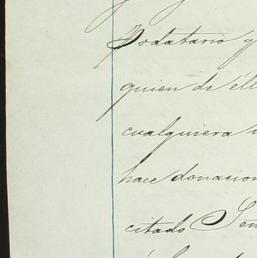 Podatario y
quien de éll
cualquiera
hace donacion
citado Señ